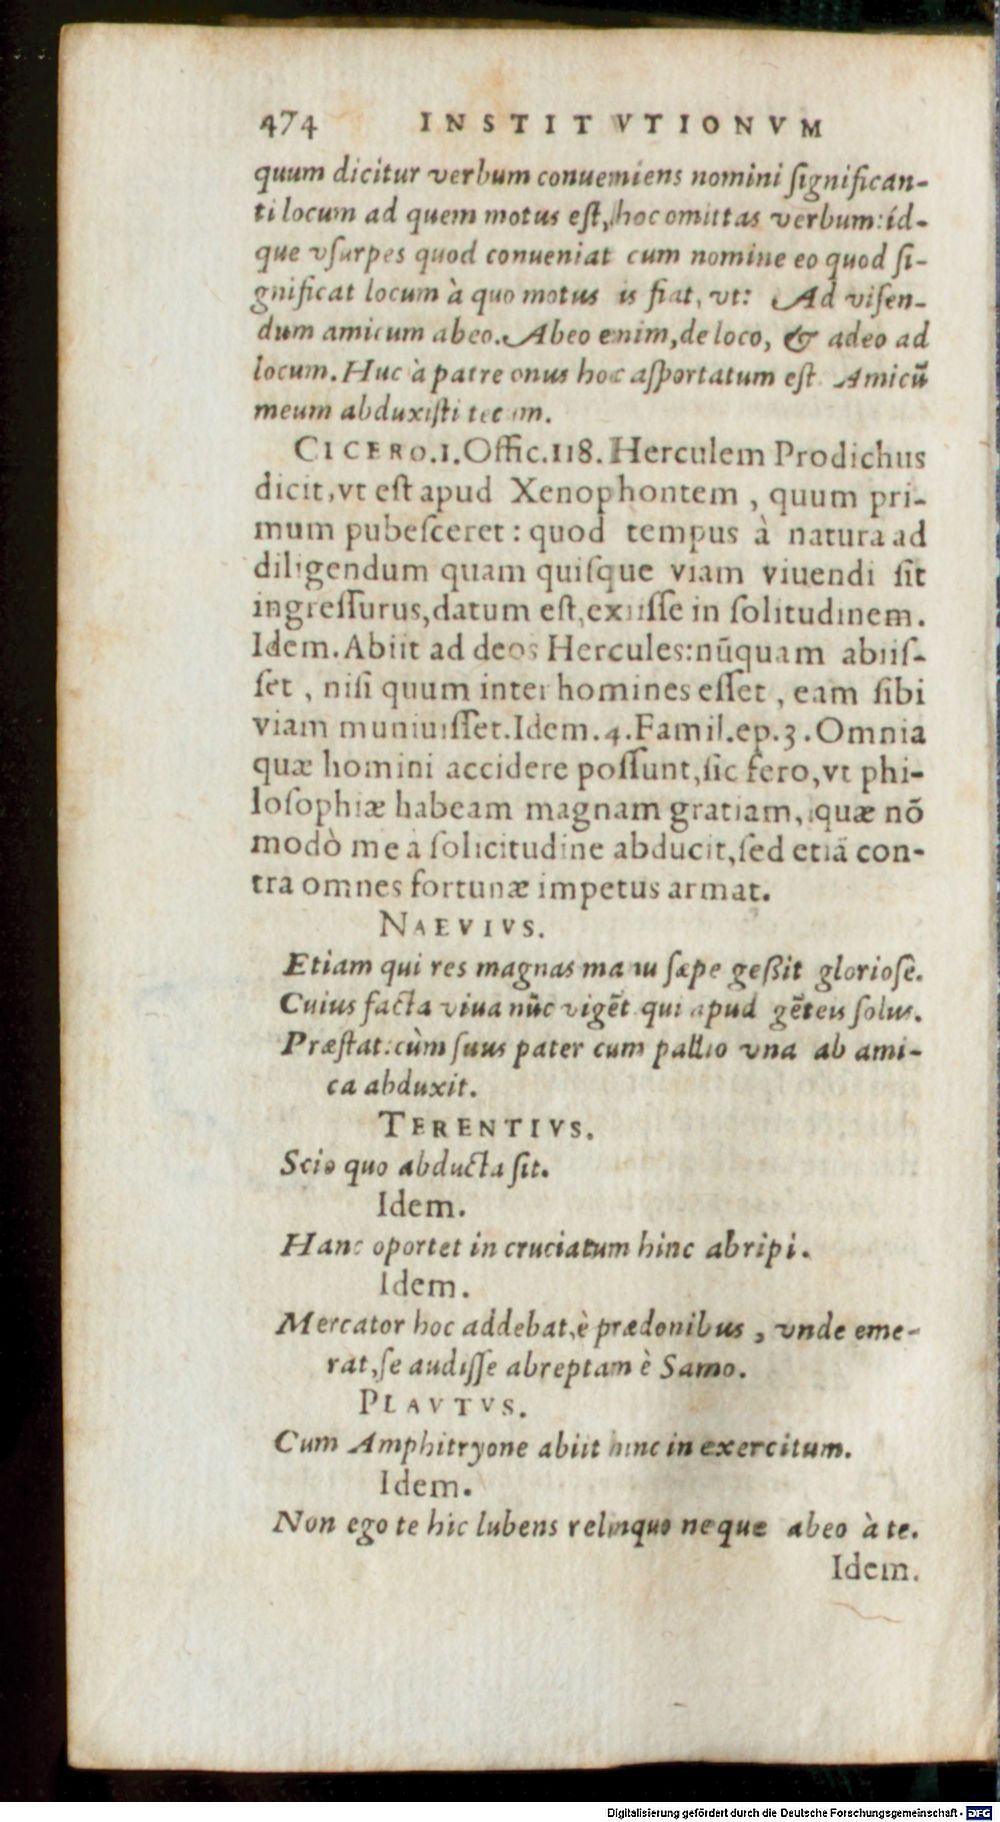 474 INSTITVTIONVM
quum dicitur verbum conueniens nomini ſignifican-
ti locum ad quem motus eſt, hoc omittas verbum: íd-
que vſurpes quod conueniat cum nomine eo quod ſi-
gnificat locum à quo motus is fiat, vt: Ad viſen-
dum amicum abeo. Abeo enim, de loco, & adeo ad
locum. Huc à patre onus hoc aſportatum eſt. Amicũ
meum abduxiſti tecum.
CICERO.1.Offic.118. Herculem Prodichus
dicit, vt eſt apud Xenophontem, quum pri-
mum pubeſceret: quod tempus à natura ad
diligendum quam quiſque viam viuendi ſit
ingreſſurus, datum eſt, exiiſſe in ſolitudinem.
Idem. Abiit ad deos Hercules: nũquam abiiſ-
ſet, niſi quum inter homines eſſet, eam ſibi
viam muniuiſſet. Idem.4.Famil.ep.3. Omnia
quæ homini accidere poſſunt, ſic fero, vt phi-
loſophiæ habeam magnam gratiam, quæ nõ
modò me a ſolicitudine abducit, ſed etiã con-
tra omnes fortunæ impetus armat.
NAEVIVS.
Etiam qui res magnas manu ſæpe geßit glorioſè.
Cuius facta viua nũc vigẽt qui apud gẽteis ſolus.
Præſtat: cùm ſuus pater cum pallio vna ab ami-
ca abduxit.
TERENTIVS.
Scio quo abducta ſit.
Idem.
Hanc oportet in cruciatum hinc abripi.
Idem.
Mercator hoc addebat, è prædonibus, vnde eme-
rat, ſe audiſſe abreptam è Samo.
PLAVTVS.
Cum Amphitryone abiit hinc in exercitum.
Idem.
Non ego te hic lubens relinquo neque abeo à te.
Idem.
Digitalisierung gefördert durch die Deutsche Forschungsgemeinschaft - DFG